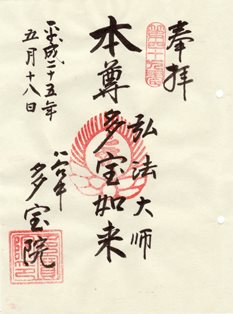 奉拝
弘法大師
本尊多宝如来
八六十
多宝院
平成二十五年
五月十八日